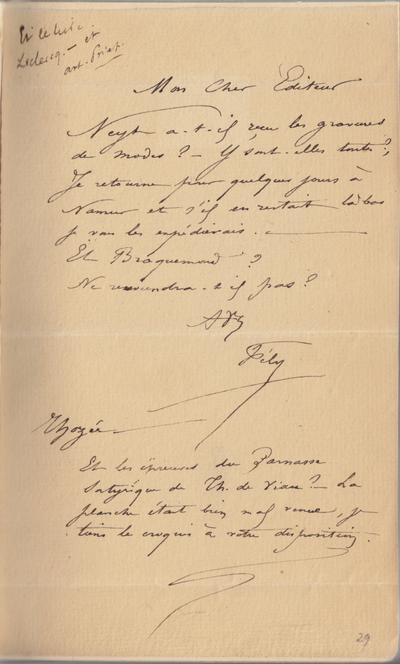 Leclercq. et
Mon Cher Editeur
Neyt a-t-il reçu les gravures
de modes ? – Y sont-elles toutes ?,
Je retourne pour quelques jours à
Namur et s'il en restait là bas
je vous les expédierais. –
Et Bracquemond ?
Ne reviendra-t-il pas ?
Fély
Et les épreuves du Parnasse
Satyrique de Th. de Viau ? – La
planche était bien mal venue, je
tiens le croquis à votre disposition.
29